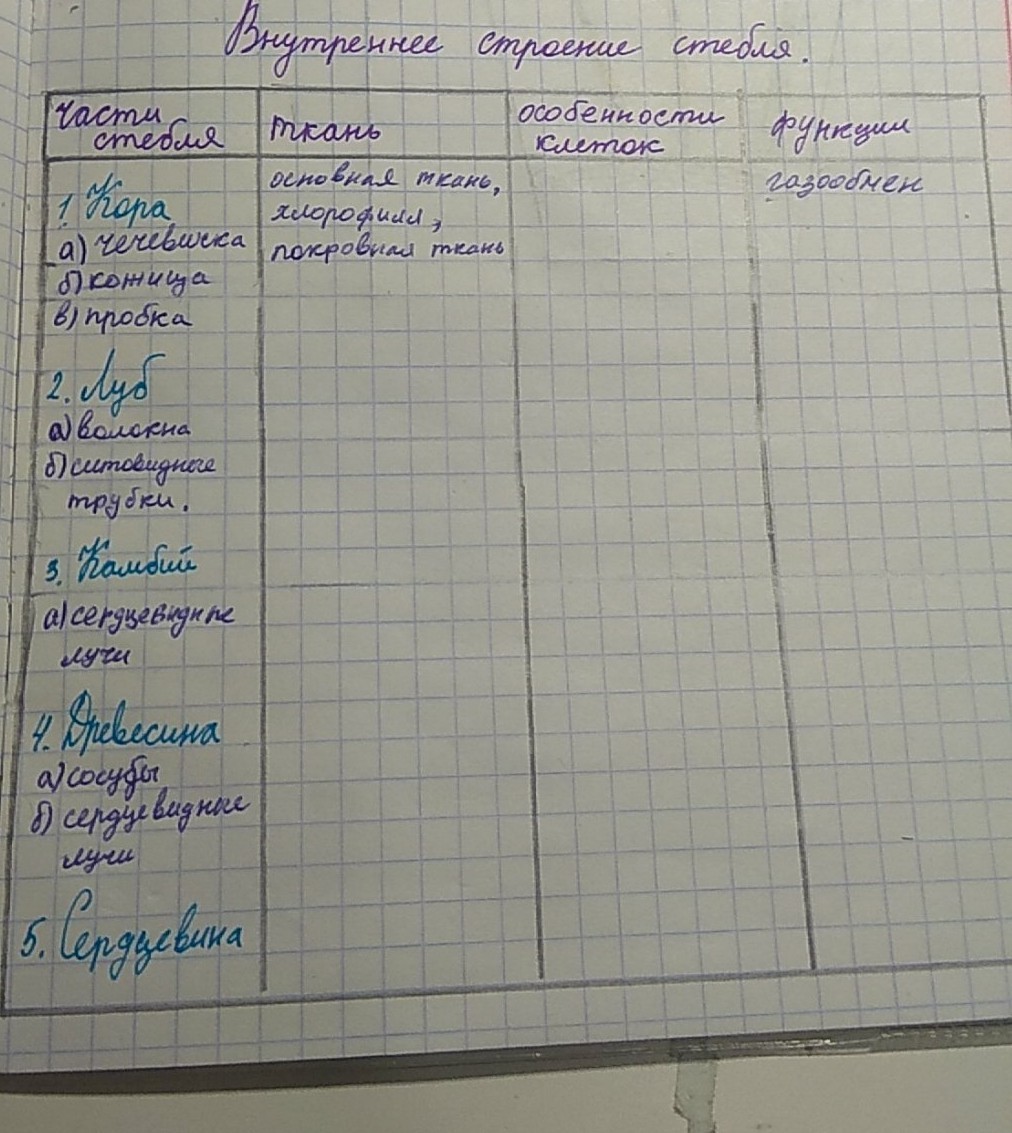 Внутреннее строение стебля.
части стебля
ткань
особенности клеток
функции
1. Кора
а) чечевичка
б) кожица
в) пробка
основная ткань,
хлорофилл,
покровная ткань
газообмен
2. Луб
а) волокна
б) ситовидные
трубки.
3. Камбий
а) сердцевидные
лучи
4. Древесина
а) сосуды
б) сердцевидные
лучи
5. Сердцевина